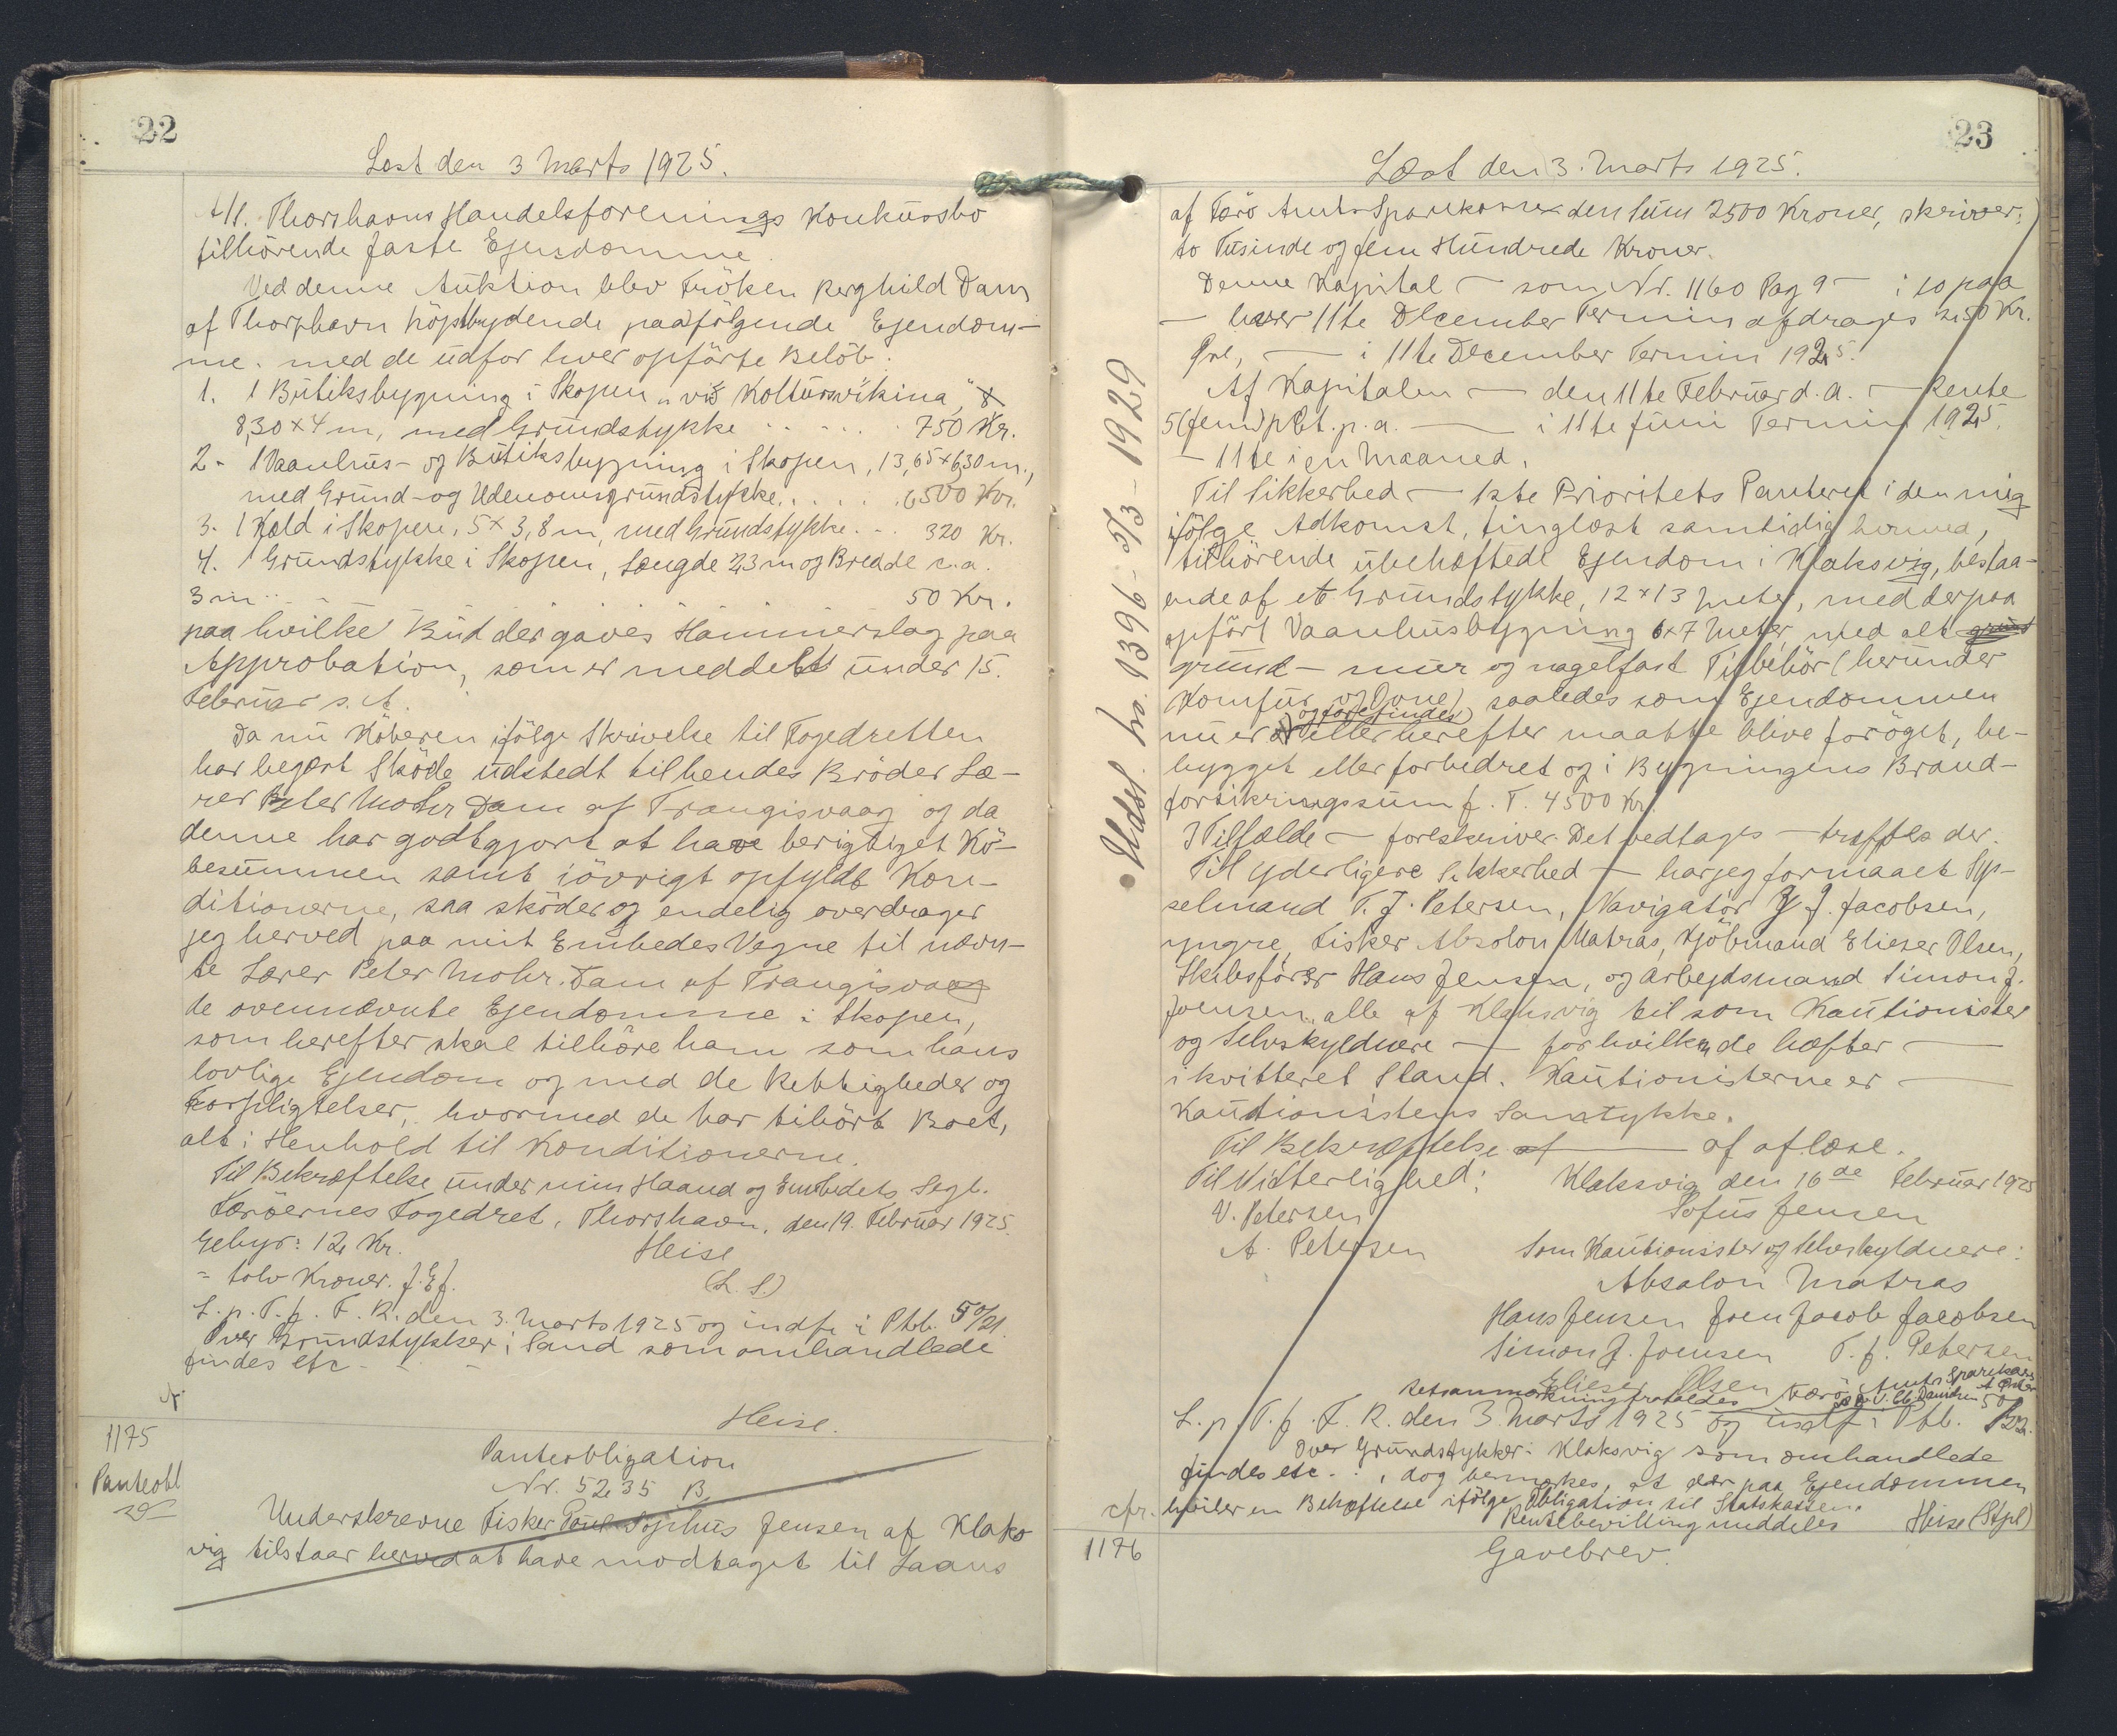 22
Læst den 3 Marts 1925.
A/S. Thorshavns Handelsforenings Konkursbo
tilhörende faste Ejendomme.
Ved denne Auktion blev Fröken Berghild Dam
af Thorshavn höjstbydende paa følgende Ejendom-
me. med de udfor hver opførte Belöb.
1. 1 Butiksbygning i Skopen „við Koltursvikina,"
8,30 x 4 m, med Grundstykke ..... 750 Kr.
2. 1 Vaanhus- og Butiksbygning i Skopen, 13,65 x 6,30 m.,
med Grund- og Udenomsgrundstykke..... 6500 Kr.
3. 1 Kæld i Skopen, 5 x 3,8 m, med Grundstykke... 320 Kr.
4. 1 Grundstykke i Skopen, Længde 23 m og Bredde c.a.
3 m ... 50 Kr.
paa hvilke Bud der gaves Hammerslag paa
Approbation, som er meddelt under 15.
Februar s. A.
Da nu Köberen ifölge Skrivelse til Fogedretten
har begært Sköde udstedt til hendes Bröder Læ-
rer Peter Mohr Dam af Trangisvaag og da
denne har godtgjort at have berigtiget Kö-
besummen samt iövrigt opfyldt Kon-
ditionerne, saa sköder og endelig overdrager
jeg herved paa mit Embedes Vegne til nævn-
te Lærer Peter Mohr Dam af Trangisvaag
de ovennævnte Ejendomme i Skopen,
som herefter skal tilhöre ham som hans
lovlige Ejendom og med de Rettigheder og
Forpligtelser, hvormed de har tilhört Boet,
alt i Henhold til Konditionerne.
Til Bekræftelse under min Haand og Embedets Segl.
Færöernes Fogedret, Thorshavn, den 19. Februar 1925.
Gebyr: 12 Kr. Heise
- tolv Kroner. J.Ef. (L. S.)
L. p. T. f. F. R. den 3. Marts 1925 og indf. i Pbb. 50/21.
Over Grundstykker i Sand som omhandlede
findes etc - - -
Heise.
1175
Panteobl
Panteobligation
Nr. 5235 B.
Underskrevne Fisker Poul Sophus Jensen af Klaks
vig tilstaar herved at have modtaget til Laans
23
Læst den 3. Marts 1925.
af Færö Amts Sparekasse den Sum 2500 Kroner, skriver:
to Tusinde og fem Hundrede Kroner.
Denne Kapital — som Nr. 1160 Pag 9 — i 10 paa
— hver 11te December Termin afdrages 250 Kr.
Øre, — i 11te December Termin 1925.
Af Kapitalen — den 11te Februar d. A. — Rente
5 (fem) pCt. p. a. — i 11te Juni Termin 1925.
— 11te i en Maaned.
Til Sikkerhed — 1ste Prioritets Panteret i den mig
ifölge Adkomst, tinglæst samtidig hermed,
tilhörende ubehæftede Ejendom i Klaksvig, bestaa-
ende af et Grundstykke, 12 x 13 Meter, med derpaa
opfört Vaanhusbygning 6 x 7 Meter, med alt grund
grund- mur og nagelfast Tilbehör (herunder
Komfur og Ovne) saaledes som Ejendommen
nu er og forefindes eller herefter maatte blive foröget, be-
bygget eller forbedret og i Bygningens Brand-
forsikringssum f. T. 4500 Kr.
I Tilfælde — foreskriver. Det vedtages — træffes der.
Til yderligere Sikkerhed — har jeg formaaet Sys-
selmand T. J. Petersen, Navigatør J. J. Jacobsen,
yngre, Fisker Absolon Matras, Kjöbmand Elieser Olsen,
Skibsförer Hans Jensen, og Arbejdsmand Simon J.
Joensen, alle af Klaksvig til som Kautionister
og Selvskyldnere — for hvilken de hæfter —
i kvitteret Stand. Kautionisterne er —
Kautionistens Samtykke.
Til Bekræftelse af — af aflæse.
Til Vitterlighed: Klaksvig den 16de Februar 1925
V. Petersen Sofus Jensen
A. Petersen Som Kautionister og Selvskyldnere:
Absalon Matras
Hans Jensen Joen Jacob Jacobsen
Simon J. Joensen T. J. Petersen
Elieser Olsen Færö Amts Sparekasse
Retsanmærkning frafaldes
L. p. T. f. F. R. den 3. Marts 1925 og indf i Pbb.
Over Grundstykker i Klaksvig som omhandlede
findes etc. . . , dog bemærkes, at der paa Ejendommen
cfr. hviler en Behæftelse ifölge Obligation til Statskassen.
Rentebevilling meddeles Heise (Stpl)
1176
Gavebrev.
Udsl. No. 1396 - 5/3 - 1929